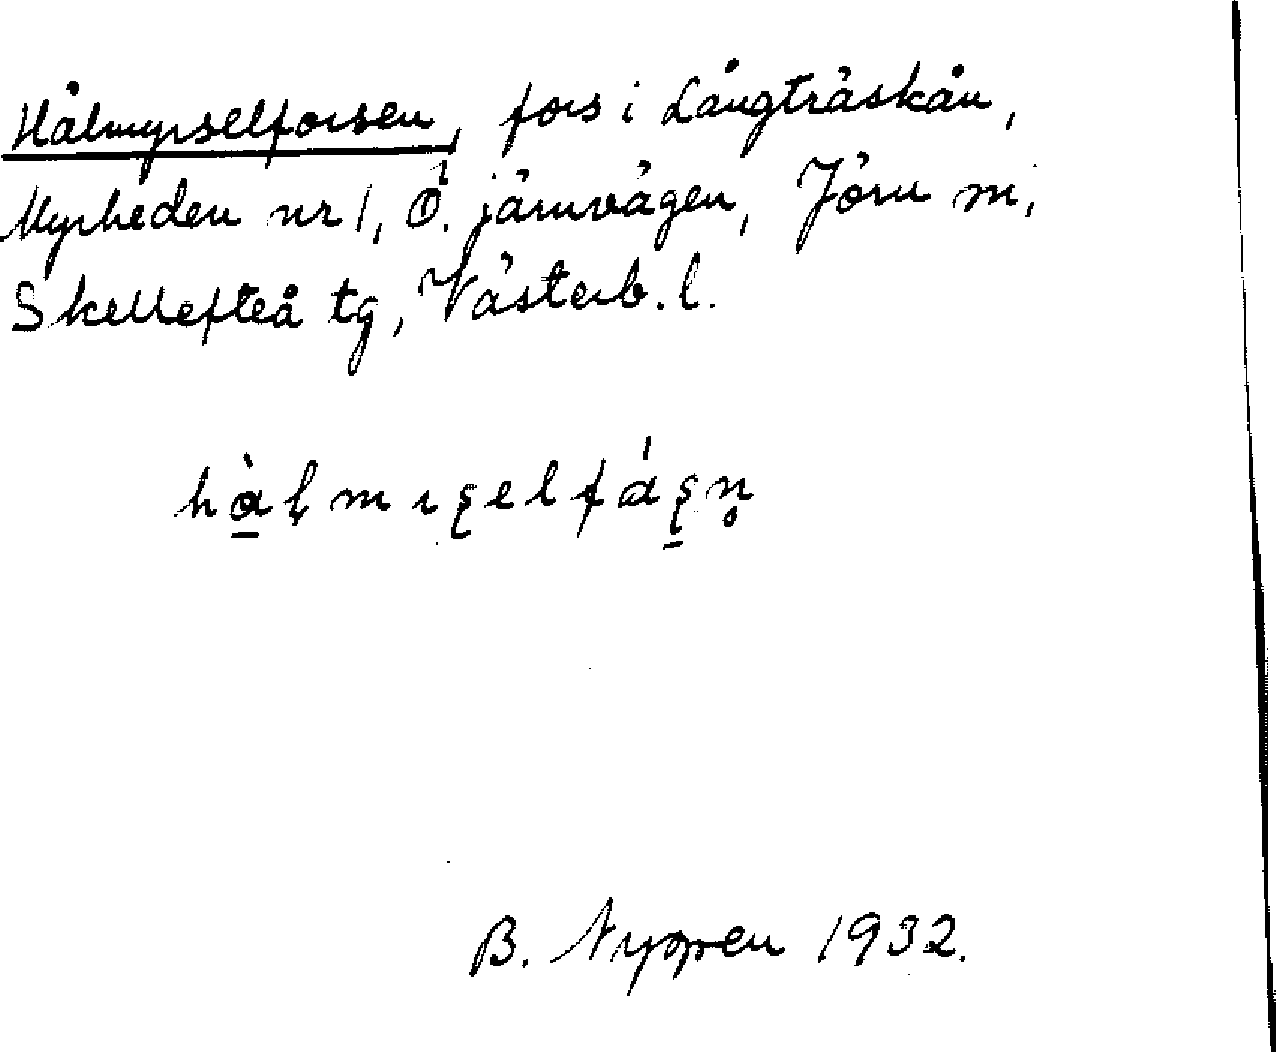 Hålmyrselforsen, fors i Långträskån,
Myrheden nr 1, Ö. järnvägen, Jörn sn,
Skellefteå tg, Västerb. l.
hàl̨mıʂelfáʂn̥
B. Nyssen 1932.